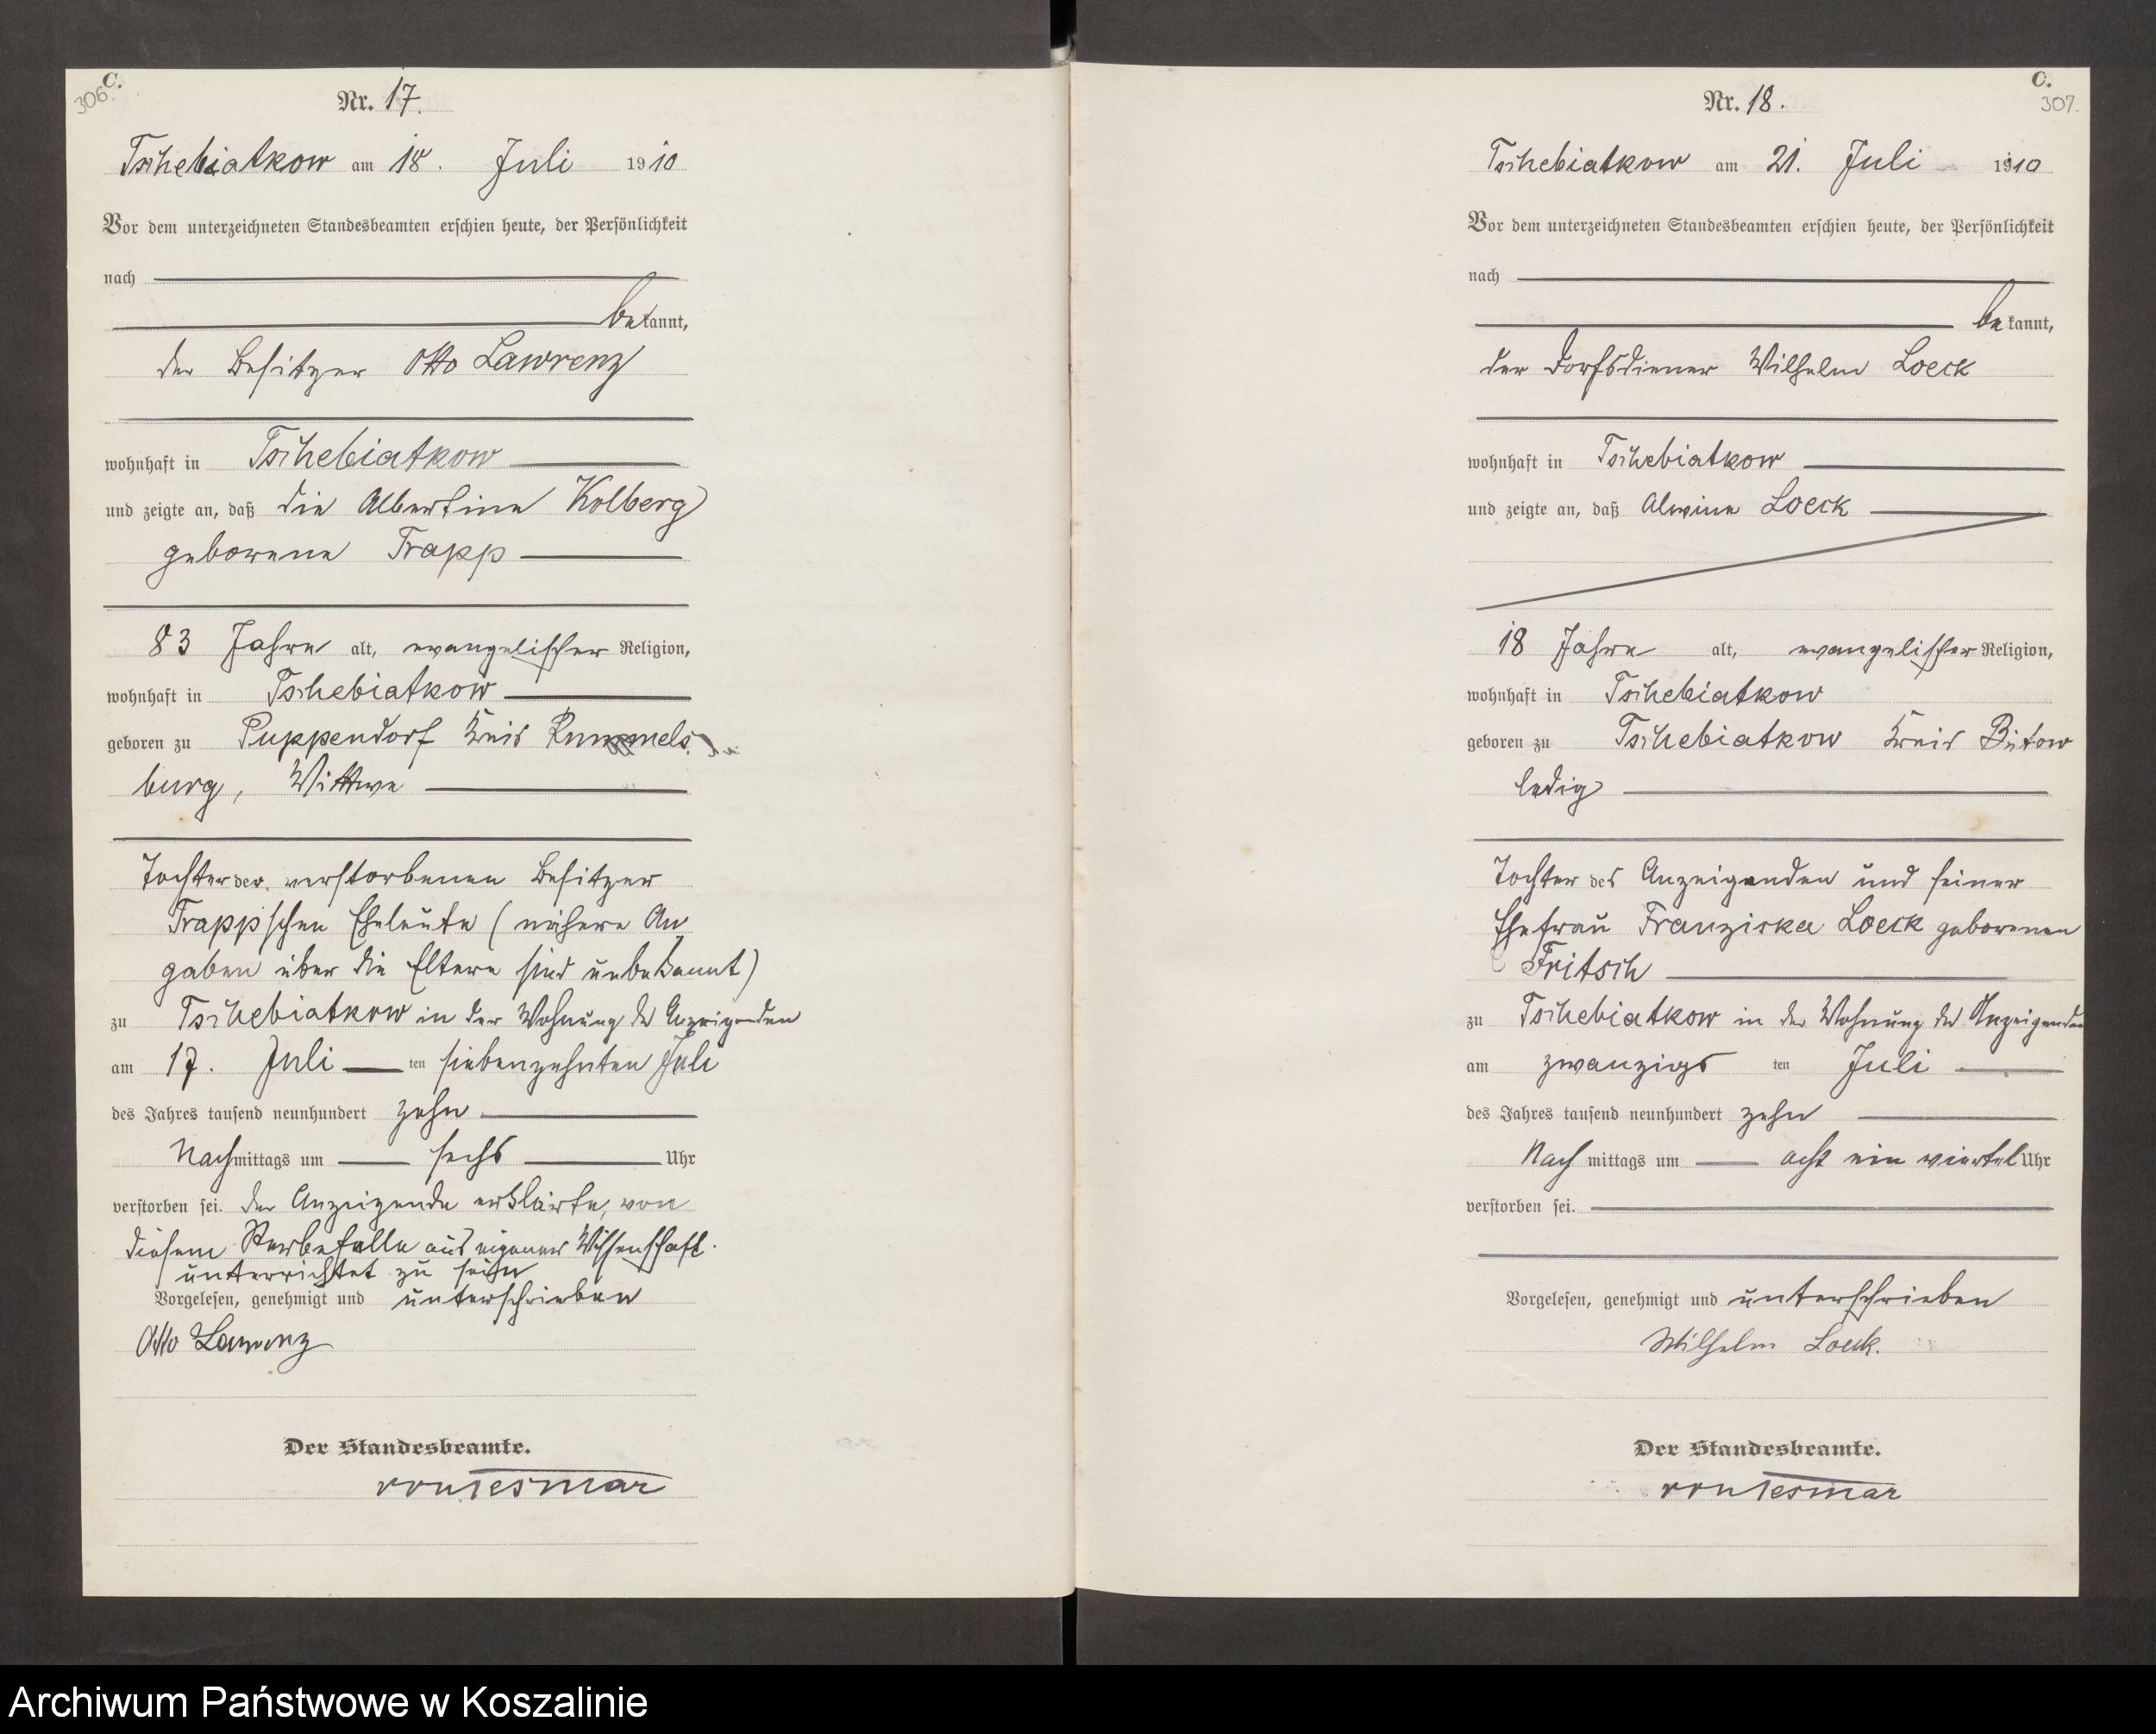 C.
306.
Nr. 17.
Tschebiatkow am 18. Juli 1910
Vor dem unterzeichneten Standesbeamten erschien heute, der Persönlichkeit
nach
bekannt,
der Besitzer Otto Lawrenz
wohnhaft in Tschebiatkow
und zeigte an, daß die Albertine Kolberg
geborene Trapp
83 Jahre alt, evangelischer Religion,
wohnhaft in Tschebiatkow
geboren zu Puppendorf Kreis Rummels
burg, Wittwe
Tochter der verstorbenen Besitzer
Trapp'schen Eheleute (nähere An
gaben über die Eltern sind unbekannt)
zu Tschebiatkow in der Wohnung des Anzeigenden
am 17. Juli ten siebenzehnten Juli
des Jahres tausend neunhundert zehn
Nachmittags um sechs Uhr
verstorben sei. Der Anzeigende erklärte, von
diesem Sterbefalle aus eigener Wissenschaft
unterrichtet zu sein
Vorgelesen, genehmigt und unterschrieben
Otto Lawrenz
Der Standesbeamte.
von Tesmar
C.
307.
Nr. 18.
Tschebiatkow am 21. Juli 1910
Vor dem unterzeichneten Standesbeamten erschien heute, der Persönlichkeit
nach
bekannt,
der Dorfsdiener Wilhelm Loeck
wohnhaft in Tschebiatkow
und zeigte an, daß Alwine Loeck
18 Jahre alt, evangelischer Religion,
wohnhaft in Tschebiatkow
geboren zu Tschebiatkow Kreis Bütow
ledig
Tochter des Anzeigenden und seiner
Ehefrau Franziska Loeck geborenen
Fritsch
zu Tschebiatkow in der Wohnung des Anzeigenden
am zwanzigs ten Juli
des Jahres tausend neunhundert zehn
Nach mittags um acht ein viertel Uhr
verstorben sei.
Vorgelesen, genehmigt und unterschrieben
Wilhelm Loeck.
Der Standesbeamte.
von Tesmar
Archiwum Państwowe w Koszalinie